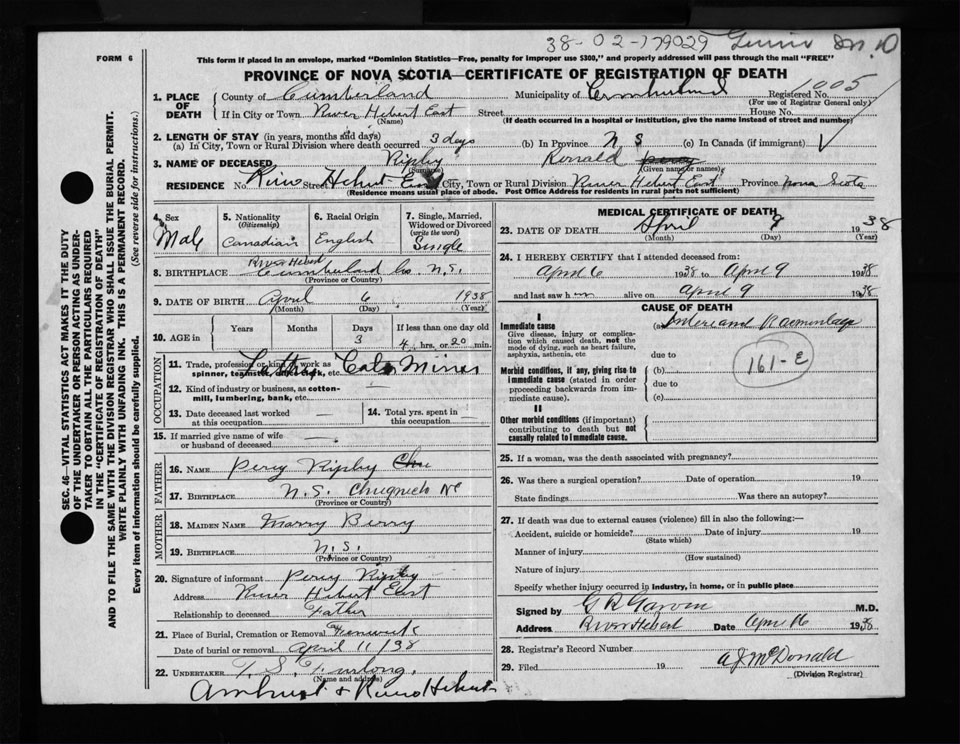 38-02-179029
FORM 6
This form if placed in an envelope, marked "Dominion Statistics—Free, penalty for improper use $300," and properly addressed will pass through the mail "FREE"
PROVINCE OF NOVA SCOTIA—CERTIFICATE OF REGISTRATION OF DEATH
1. PLACE OF DEATH
County of Cumberland Municipality of Cumberland Registered No. 1005
(For use of Registrar General only)
If in City or Town River Hebert East Street House No.
(Name) (If death occurred in a hospital or institution, give the name instead of street and number)
2. LENGTH OF STAY (in years, months and days)
(a) In City, Town or Rural Division where death occurred 3 days (b) In Province N S (c) In Canada (if immigrant)
3. NAME OF DECEASED Ripley Ronald Percy
(Surname) (Given name or names)
RESIDENCE No. River Street Hebert East City, Town or Rural Division River Hebert East Province Nova Scotia
(Residence means usual place of abode. Post Office Address for residents in rural parts not sufficient)
SEC. 46—VITAL STATISTICS ACT MAKES IT THE DUTY
OF THE UNDERTAKER OR PERSON ACTING AS UNDER-
TAKER TO OBTAIN ALL THE PARTICULARS REQUIRED
IN THE "CERTIFICATE OF REGISTRATION OF DEATH"
AND TO FILE THE SAME WITH THE DIVISION REGISTRAR WHO SHALL ISSUE THE BURIAL PERMIT.
WRITE PLAINLY WITH UNFADING INK. THIS IS A PERMANENT RECORD.
Every item of information should be carefully supplied. (See reverse side for instructions.)
4. Sex Male
5. Nationality (Citizenship) Canadian
6. Racial Origin English
7. Single, Married, Widowed or Divorced (write the word) Single
8. BIRTHPLACE River Hebert Cumberland Co N.S.
(Province or Country)
9. DATE OF BIRTH April 6 1938
(Month) (Day) (Year)
10. AGE in Years Months Days 3 If less than one day old 4 hrs. or 20 min.
OCCUPATION
11. Trade, profession or kind of work as spinner, teamster, office clerk, etc.
12. Kind of industry or business, as cotton-mill, lumbering, bank, etc. —
13. Date deceased last worked at this occupation —
14. Total yrs. spent in this occupation —
15. If married give name of wife or husband of deceased —
FATHER
16. NAME Percy Ripley
17. BIRTHPLACE N.S. Chignecto
(Province or Country)
MOTHER
18. MAIDEN NAME Marry Berry
19. BIRTHPLACE N.S.
(Province or Country)
20. Signature of informant Percy Ripley
Address River Hebert East
Relationship to deceased Father
21. Place of Burial, Cremation or Removal Fenwick
Date of burial or removal April 11/38
22. UNDERTAKER T. S. Furlong
(Name and address)
Amherst & River Hebert
MEDICAL CERTIFICATE OF DEATH
23. DATE OF DEATH April 9 1938
(Month) (Day) (Year)
24. I HEREBY CERTIFY that I attended deceased from:
April 6 1938 to April 9 1938
and last saw him alive on April 9 1938
CAUSE OF DEATH
I
Immediate cause (a)
Give disease, injury or complication which caused death, not the mode of dying, such as heart failure, asphyxia, asthenia, etc
due to
161-E
Morbid conditions, if any, giving rise to immediate cause (stated in order proceeding backwards from immediate cause).
(b)
due to
(c)
II
Other morbid conditions (if important) contributing to death but not causally related to immediate cause.
25. If a woman, was the death associated with pregnancy?
26. Was there a surgical operation? Date of operation 19
State findings Was there an autopsy?
27. If death was due to external causes (violence) fill in also the following:—
Accident, suicide or homicide? Date of injury 19
(State which)
Manner of injury
(How sustained)
Nature of injury
Specify whether injury occurred in industry, in home, or in public place
Signed by M.D.
Address River Hebert Date April 16 1938
28. Registrar's Record Number
29. Filed 19 A J McDonald
(Division Registrar)